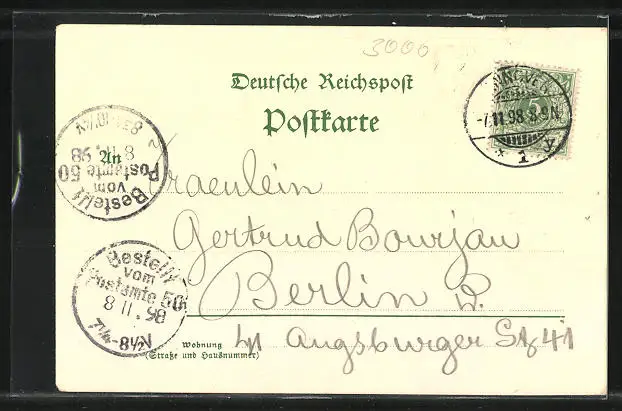 3000
Deutsche Reichspost
Postkarte
5
-7.11.98.8-9N
* 1 y
An
Bestellt
vom
Postamte 50
8 11. 98
Fraeulein
Gertrud Bourjau
Berlin W.
Bestellt
vom
Postamte 50
8 11. 98
7¼-8½N
Wohnung
(Straße und Hausnummer)
41 Augsburger Str 41